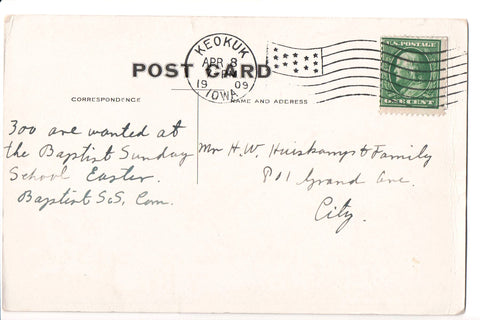 KEOKUK
APR 8
PM
19 09
IOWA
U.S. POSTAGE
ONE CENT
POST CARD
CORRESPONDENCE
NAME AND ADDRESS
300 are wanted at
the Baptist Sunday
School Easter.
Baptist S.S. Com.
Mr H.W. Huiskamp & Family
801 Grand Ave.
City.